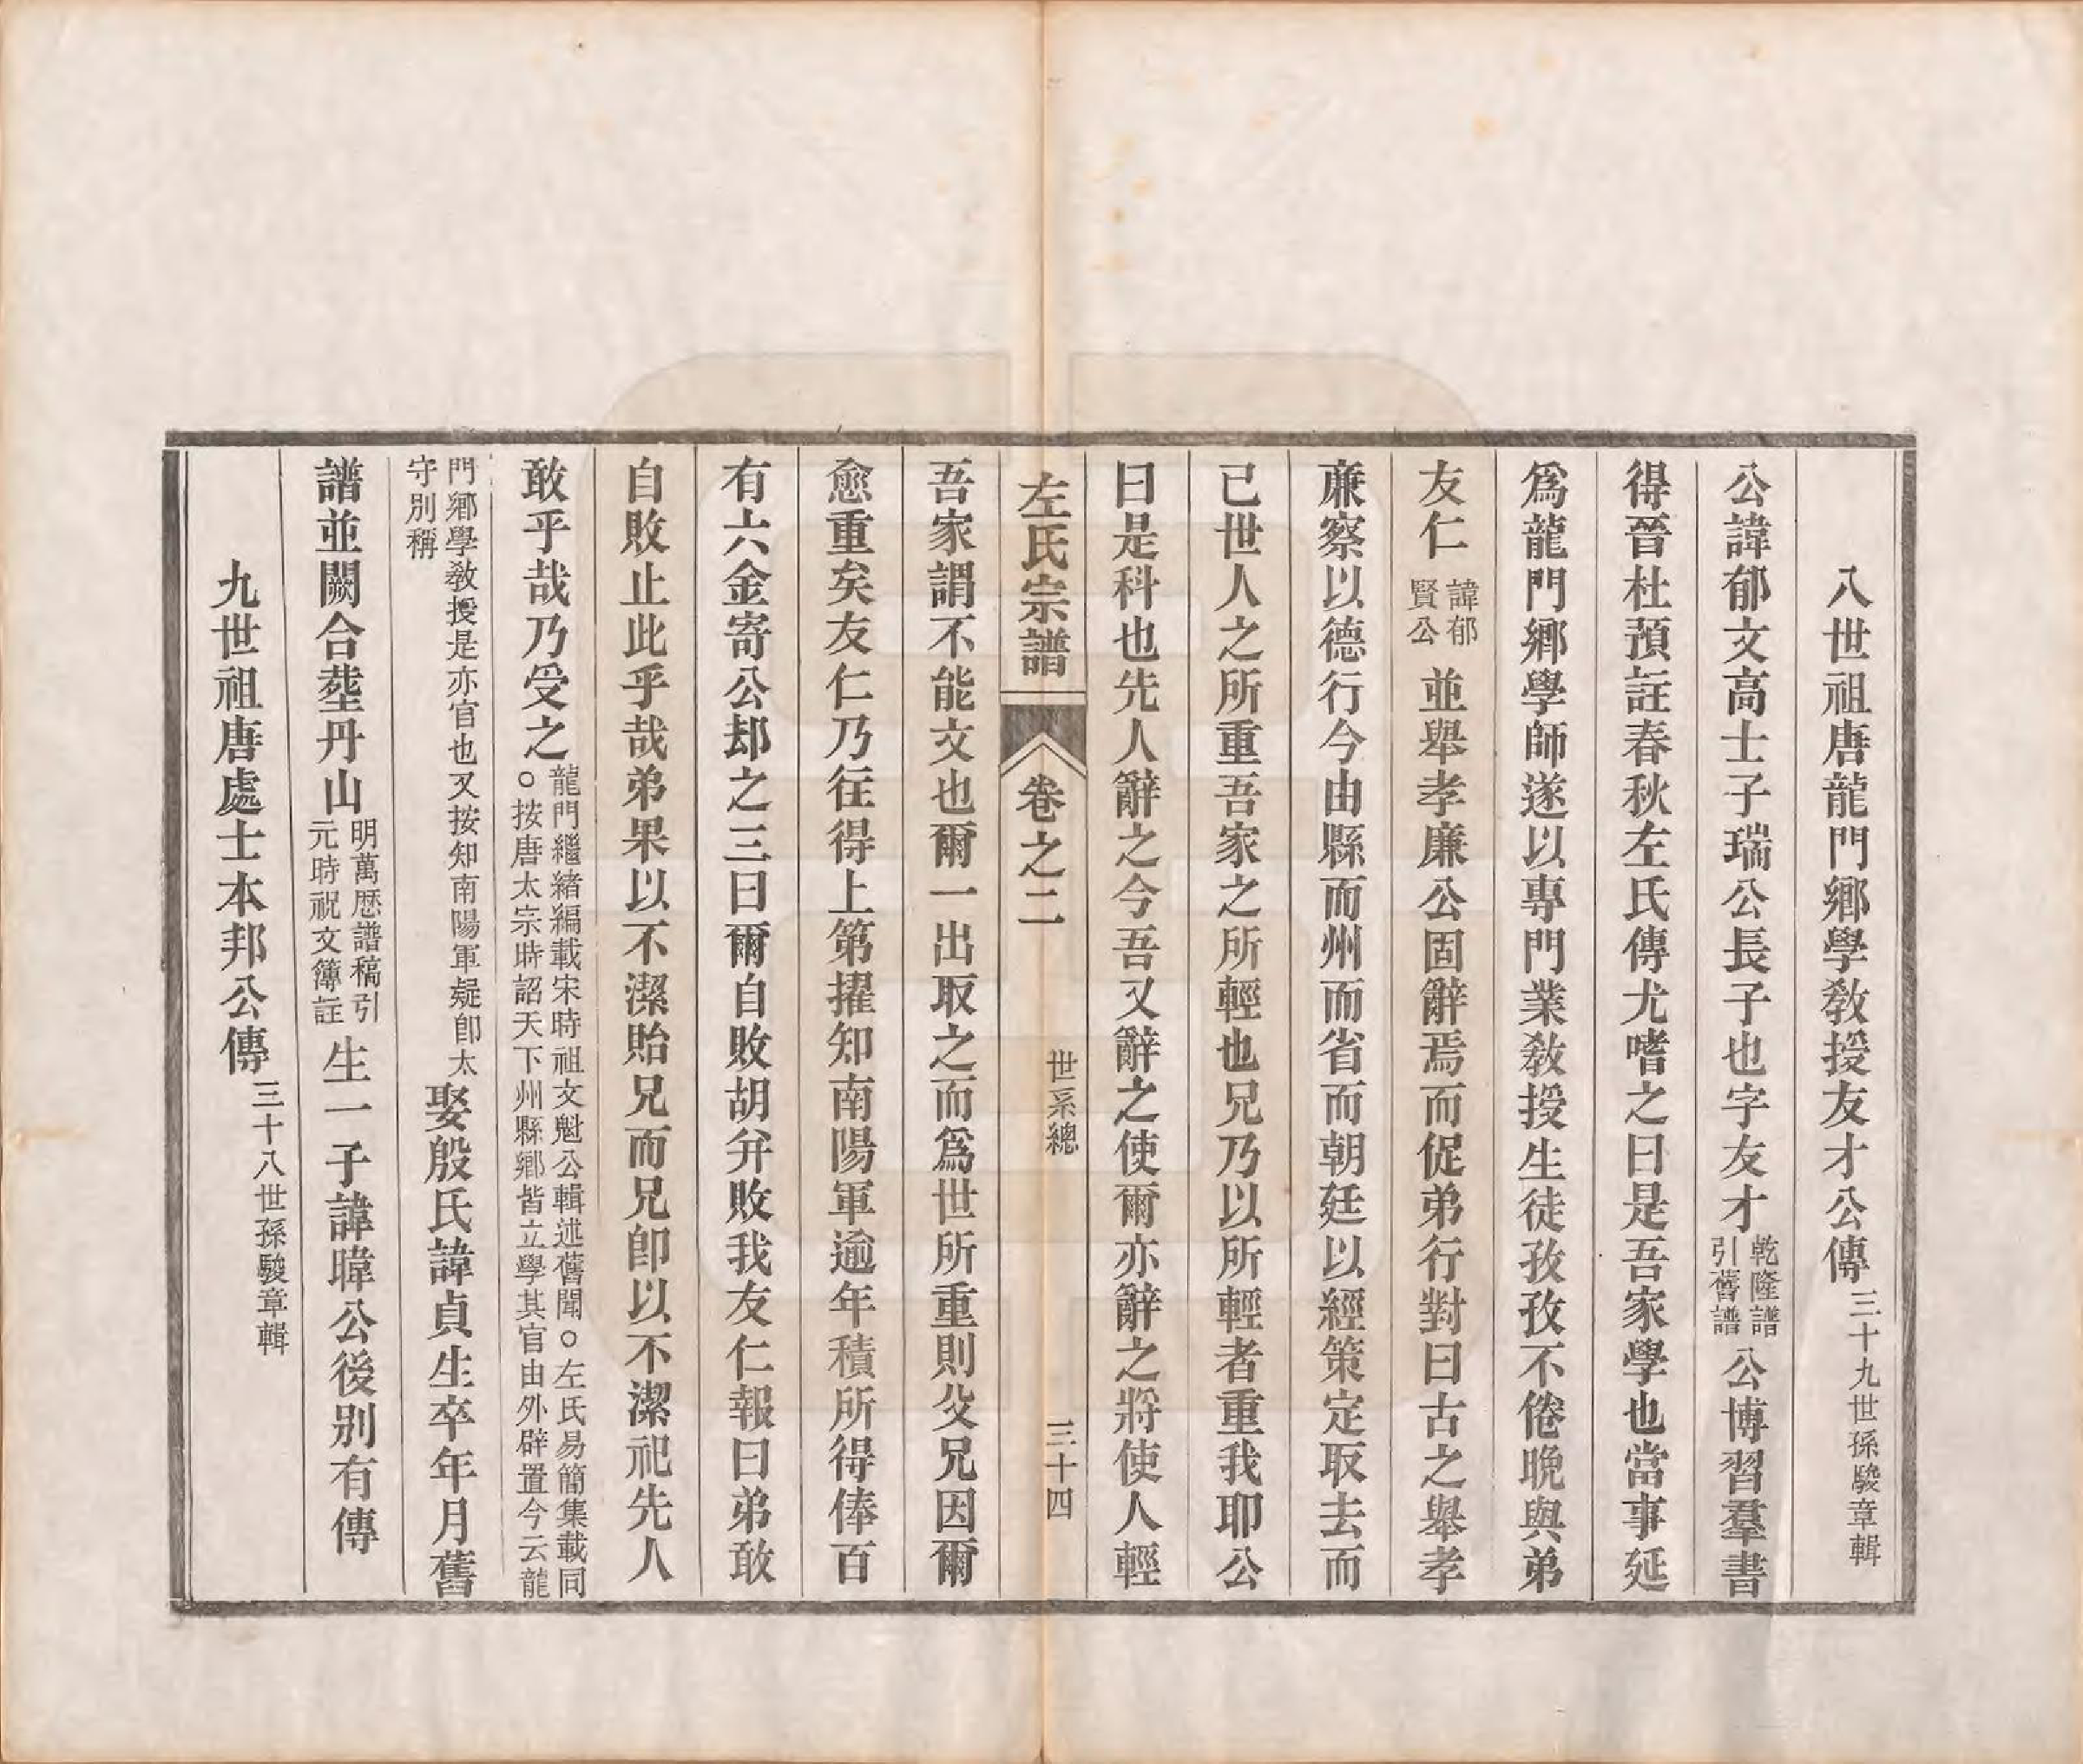 八世祖唐龍門鄉學教授友才公傳三十九世孫駿章輯
公諱郁文高士子瑞公長子也字友才乾隆譜引舊譜公博習羣書
得晉杜預註春秋左氏傳尤嗜之曰是吾家學也當事延
爲龍門鄉學師遂以專門業敎授生徒孜孜不倦晚與弟
友仁諱郁賢公並舉孝廉公固辭焉而促弟行對曰古之舉孝
廉察以德行今由縣而州而省而朝廷以經策定取去而
已世人之所重吾家之所輕也兄乃以所輕者重我耶公
曰是科也先人辭之今吾又辭之使爾亦辭之將使人輕
左氏宗譜 卷之二 世系總 三十四
吾家謂不能文也爾一出取之而爲世所重則父兄因爾
愈重矣友仁乃往得上第擢知南陽軍逾年積所得俸百
有六金寄公却之三曰爾自敗胡弁敗我友仁報曰弟敢
自敗止此乎哉弟果以不潔貽兄而兄卽以不潔祀先人
敢乎哉乃受之龍門繼緒編載宋時祖文魁公輯述舊聞○左氏易簡集載同○按唐太宗時詔天下州縣鄉皆立學其官由外辟置今云龍
門鄉學敎授是亦官也又按知南陽軍疑卽太守別稱娶殷氏諱貞生卒年月舊
譜並闕合塟丹山明萬歷譜稿引元時祝文簿註生一子諱暐公後别有傳
九世祖唐處士本邦公傳三十八世孫駿章輯